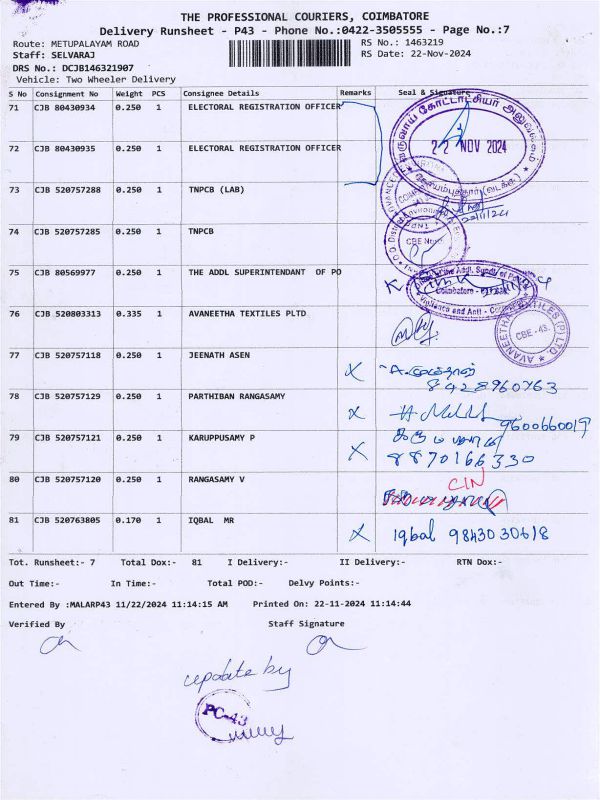 THE PROFESSIONAL COURIERS, COIMBATORE
Delivery Runsheet - P43 - Phone No.:0422-3505555 - Page No.:7
Route: METUPALAYAM ROAD RS No.: 1463219
Staff: SELVARAJ RS Date: 22-Nov-2024
DRS No.: DCJB146321907
Vehicle: Two Wheeler Delivery
S No Consignment No Weight PCS Consignee Details Remarks Seal & Signature
71 CJB 80430934 0.250 1 ELECTORAL REGISTRATION OFFICER
22 NOV 2024
72 CJB 80430935 0.250 1 ELECTORAL REGISTRATION OFFICER
73 CJB 520757288 0.250 1 TNPCB (LAB)
74 CJB 520757285 0.250 1 TNPCB
75 CJB 80569977 0.250 1 THE ADDL SUPERINTENDANT OF PO
76 CJB 520803313 0.335 1 AVANEETHA TEXTILES PLTD
AVANEETHA TEXTILES (P) LTD. CBE-43.
77 CJB 520757118 0.250 1 JEENATH ASEN X
8428960763
78 CJB 520757129 0.250 1 PARTHIBAN RANGASAMY X 9600660019
79 CJB 520757121 0.250 1 KARUPPUSAMY P X
8870166330
80 CJB 520757120 0.250 1 RANGASAMY V CIN
81 CJB 520763805 0.170 1 IQBAL MR X Iqbal 9843030618
Tot. Runsheet:- 7 Total Dox:- 81 I Delivery:- II Delivery:- RTN Dox:-
Out Time:- In Time:- Total POD:- Delvy Points:-
Entered By :MALARP43 11/22/2024 11:14:15 AM Printed On: 22-11-2024 11:14:44
Verified By Staff Signature
update by
PC-43